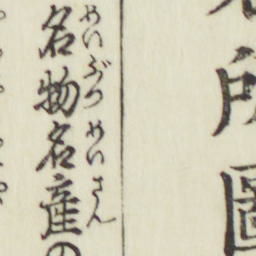 所圖
名物名産の
めいぶつめいさん